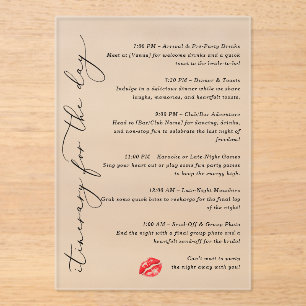 itinerary for the day
7:00 PM – Arrival & Pre-Party Drinks
Meet at [Venue] for welcome drinks and a quick
toast to the bride-to-be!
7:30 PM – Dinner & Toasts
Indulge in a delicious dinner while we share
laughs, memories, and heartfelt toasts.
9:00 PM – Club/Bar Adventure
Head to [Bar/Club Name] for dancing, drinks,
and non-stop fun to celebrate the last night of
freedom!
12:00 AM – Karaoke or Late-Night Games
Sing your heart out or play some fun party games
to keep the energy high.
12:30 AM – Late-Night Munchies
Grab some quick bites to recharge for the final lap
of the night!
1:00 AM – Send-Off & Group Photo
End the night with a final group photo and a
heartfelt sendoff for the bride!
Can't wait to party
the night away with you!